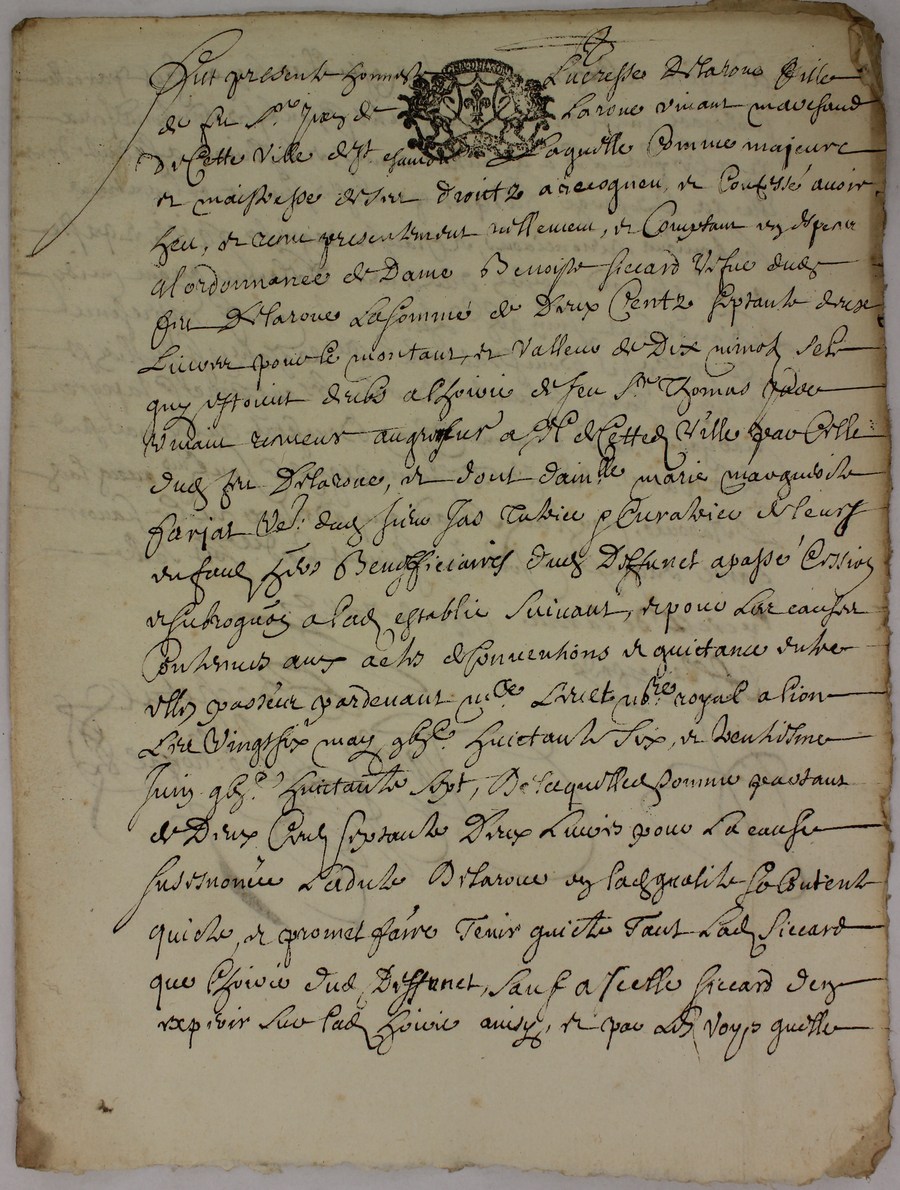 Fut presente honneste Lucresse Delaroue fille
de feu Sr de Laroue vivant marchand
de cette ville de St chamond Laquelle comme majeure
et maistresse de ses droictz a recogneu, et confessé avoir
heu, et receu presentement reellement, et comptant
a l'ordonnance de Dame Benoiste Siccard vefve dud
feu Delaroue La somme de Deux Centz septante deux
Livres pour le montant, et valleur de Dix minotz sel
quy estoient deubs a l'hoirie de feu Sr Thomas
vivant a sel de cetted ville par celle
dud feu Delaroue, et dont damlle marie marguerite
farjat vef. dud sieur tutrice curatrice de leurs
enfantz hers Benefficiaires dud Deffunct a passé Cession
et subrogaon a lad establie suivant, et pour les causes
contenues aux actes de conventions et quictance entre
elles passées pardevant mre nore royal a lion
Les vingt six may gbic huictante six, et
Juin gbic huictante sept, De laquelle d somme partant
de Deux Centz septante Deux Livres pour la cause
susesnoncée Ladicte Delaroue en lad qualité se contente
quicte, et promet faire tenir quicte tant lad Siccard
que l'hoirie dud Deffunct, sauf a icelle siccard den
repeter sur lad hoirie ainsy, et par les voyes quelle